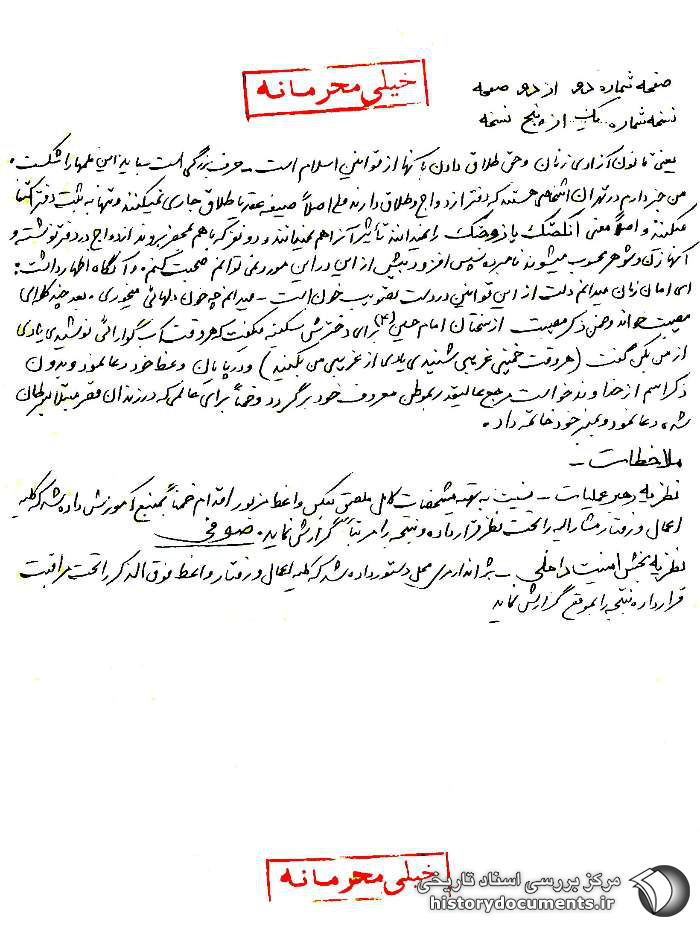 خیلی محرمانه
صفحه شماره دو از دو صفحه
نسخه شماره یک از پنج نسخه
یعنی قانون آزادی زنان و حق طلاق دادن بآنها از قوانین اسلام است – حرف بزرگی است بباید این قلمها را شکست.
من خبر دارم در تهران اشخاصی هستند که دفتر ازدواج و طلاق دارند ولی اصلاً صیغه عقد یا طلاق جاری نمیکنند و تنها به ثبت دفتر اکتفا
میکنند و اصلاً معنی انکحتک یا زوجتک را نمیدانند تأثیر آنرا هم نمیدانند و دو نفر که با هم بمحضر بروند ازدواج در دفتر نوشته و
آنها زن و شوهر محسوب میشوند نامبرده سپس افزود بیش از این در این مورد نمی توانم صحبت کنم. و آنگاه اظهار داشت:
ای امام زمان میدانم دلت از این قوانین در دست تصویب خون است – میدانم چه خون دلهائی میخوری. بعد چند کلمه‌ای
مصیبت خواند و ضمن ذکر مصیبت از سخنان امام حسین (ع) برای دخترش سکینه میگفت که هر وقت آب گوارائی نوشیدی یادی
از من بکن گفت (هر وقت خمینی غریبی شنیدی یادی از غریبی من بکنید) و در پایان وعظ خود دعا نمود و بدون
ذکر اسم از خداوند خواست مرجع عالیقدر بوطن معروف خود برگردد و ضمناً برای عالمی که در زندان قصر مبتلا بسرطان
شده دعا نمود و بمنبر خود خاتمه داد.
ملاحظات –
نظریه رهبر عملیات – نسبت به تهیه مشخصات کامل ملصق بعکس واعظ مزبور اقدام ضمناً بمنبع آموزش داده شد که کلیه
اعمال و رفتار مشارالیه را تحت نظر قرار داده و نتیجه را مرتباً گزارش نماید. صوفی
نظریه بخش امنیت داخلی – بژاندارمری محل دستور داده شد که کلیه اعمال و رفتار واعظ فوق الذکر را تحت مراقبت
قرار داده نتیجه را بموقع گزارش نماید
خیلی محرمانه
مرکز بررسی اسناد تاریخی
historydocuments.ir